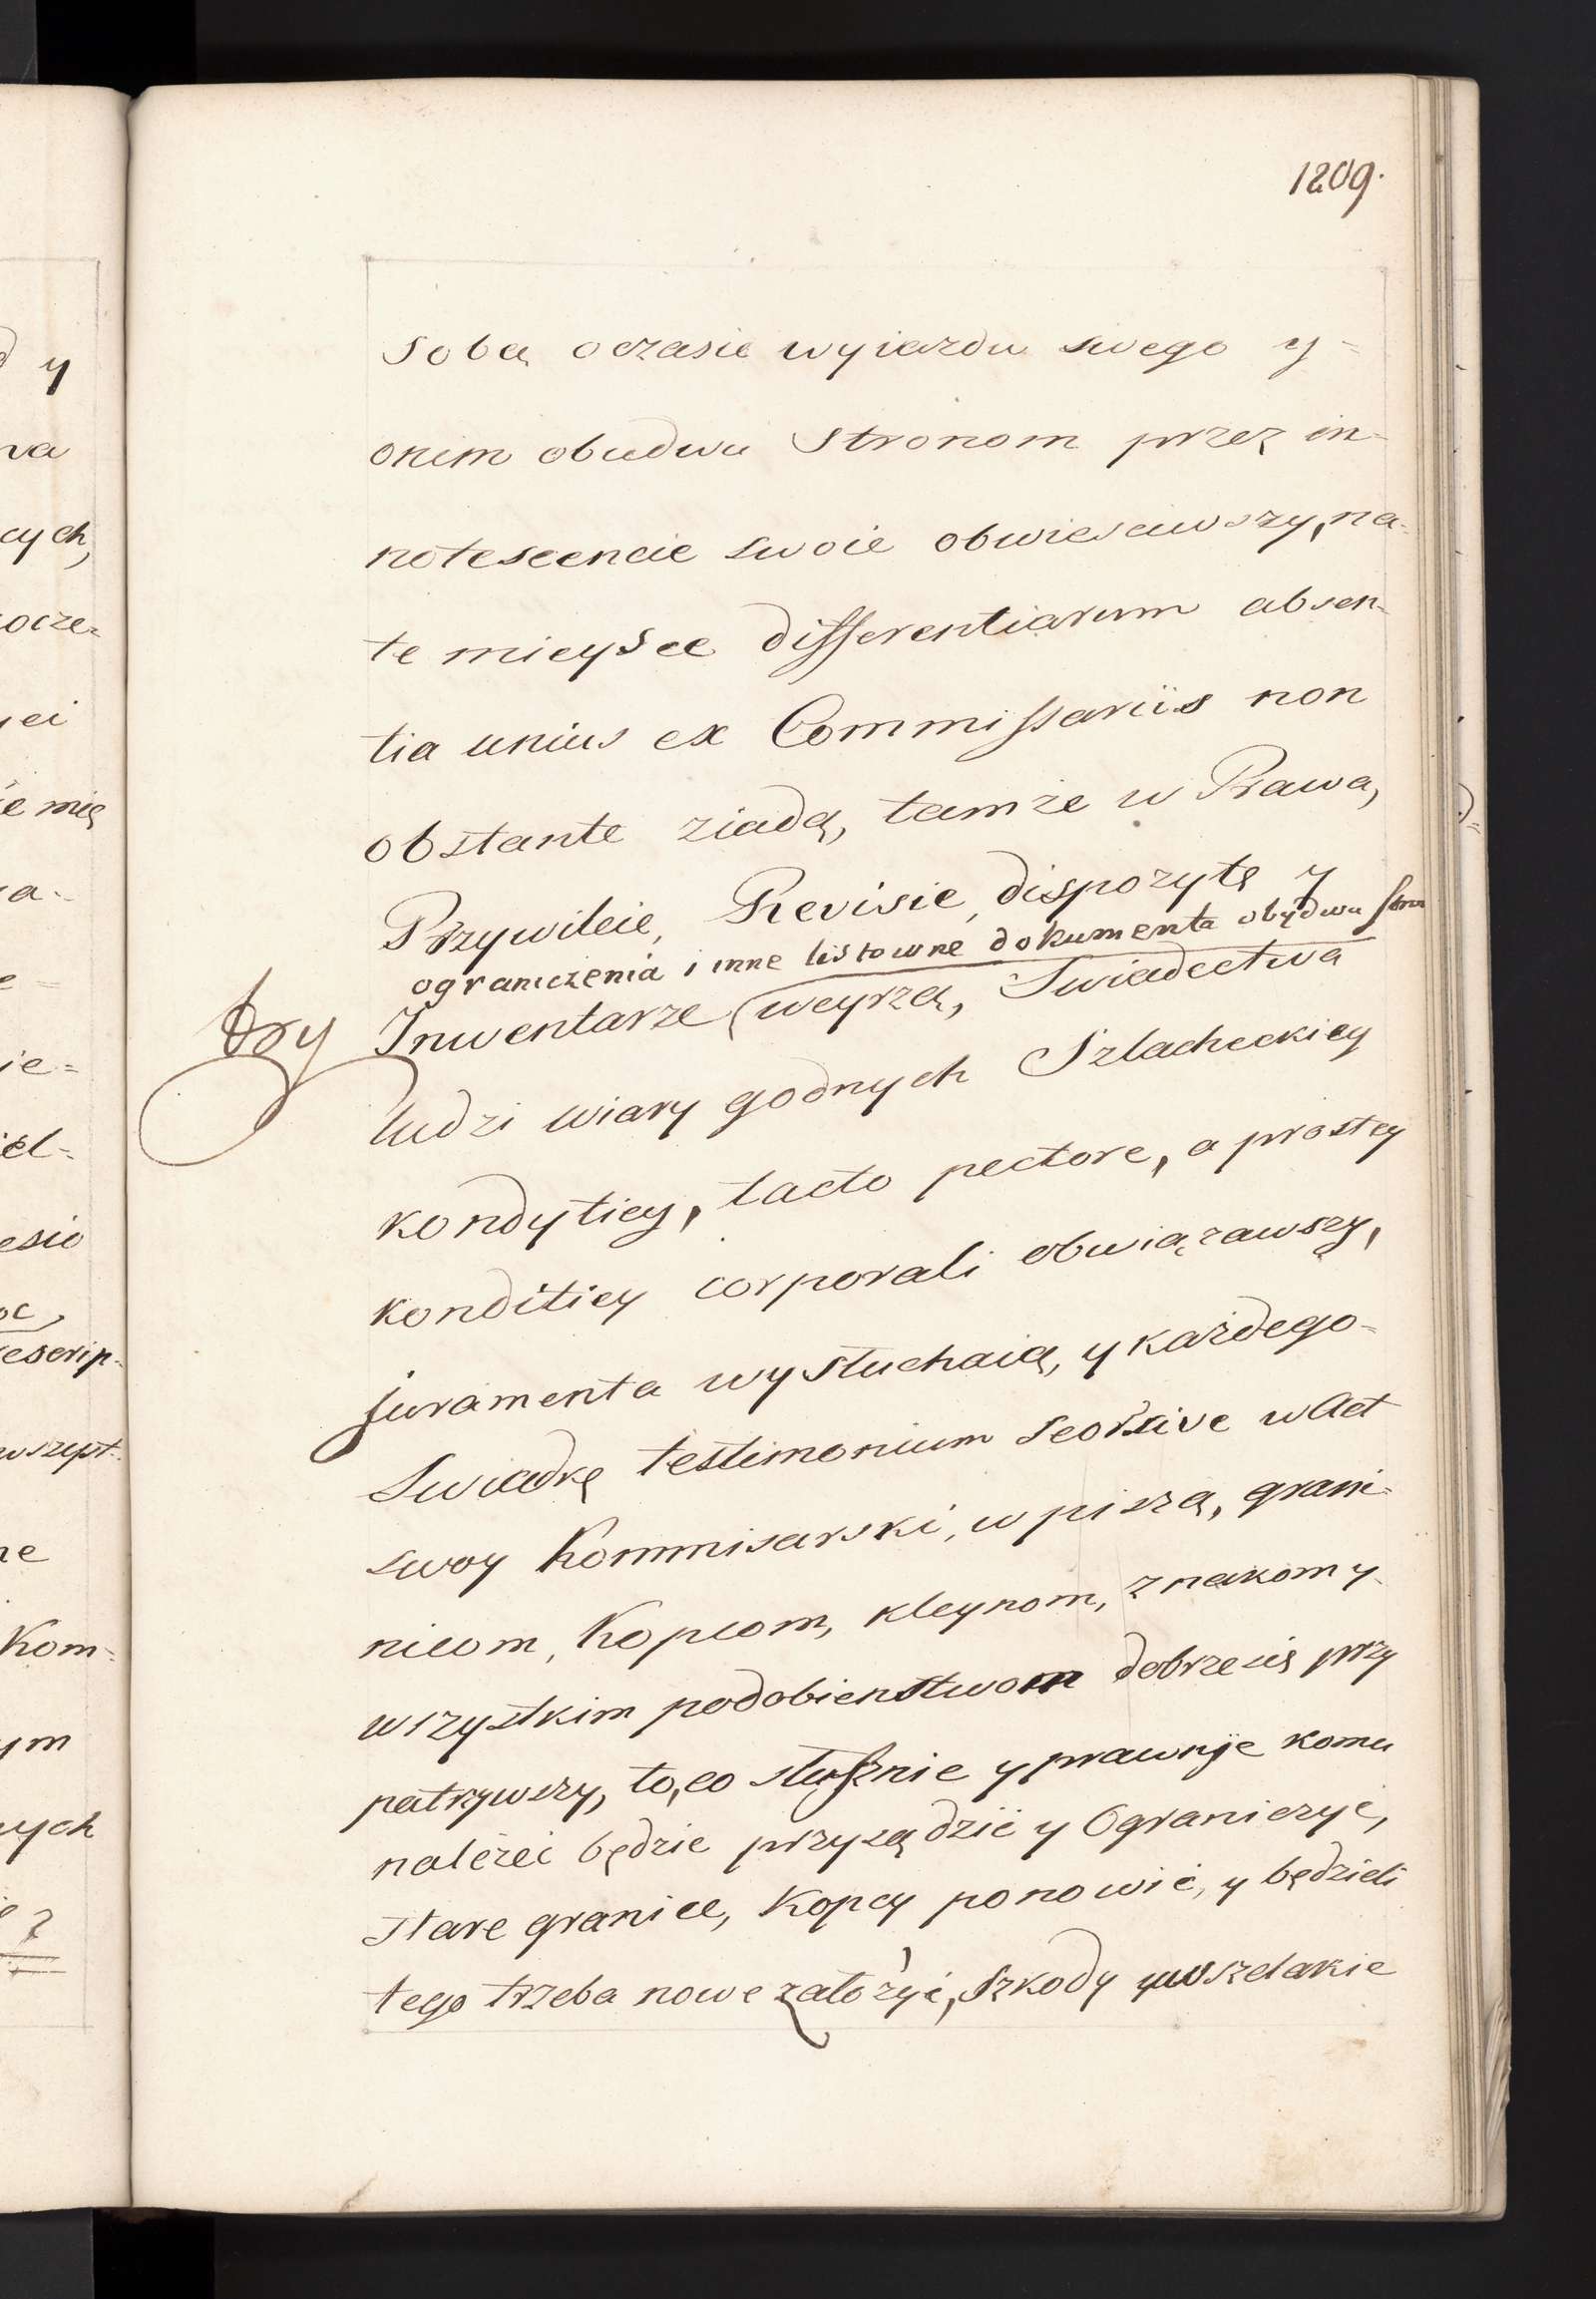 1209.
d y
sobą oczasie wyiazdu swego y=
va
onim obudwu Stronom przez in-
cych,
notescencie swoie obwiesciwszy, na-
ocze=
te mieysce differentiarum absen-
iei
tia unius ex Commissariis non
ie mię
obstante ziadą, tamże w Prawa,
a-
Przywileie, Revisie, dispozytę y
ograniczenia i inne listowne dokumenta obydwu stron
try
Inwentarze weyrzą, Swiadectwa
ie=
ludzi wiary godnych Szlacheckiey
iel=
kondytiey, tacto pectore, a prostey
esio
konditiey corporali obwiązawszy,
oc,
escrip-
juramenta wysłuchaią, y każdego=
wszyst-
Swiadkę testimonium seorsive w Act
swoy Kommisarski, wpiszą, grani-
ne
nicom, Kopcom, kleynom, znakom y-
Kom=
wszystkim podobienstwom dobrze się przy
ym
patrzywszy, to, co słusznie y prawnie komu
ych
należeć będzie przysądzić y Ograniczyć,
stare granice, Kopcy ponowić, y będzieli
tego trzeba nowe założyć, Szkody y wszelakie